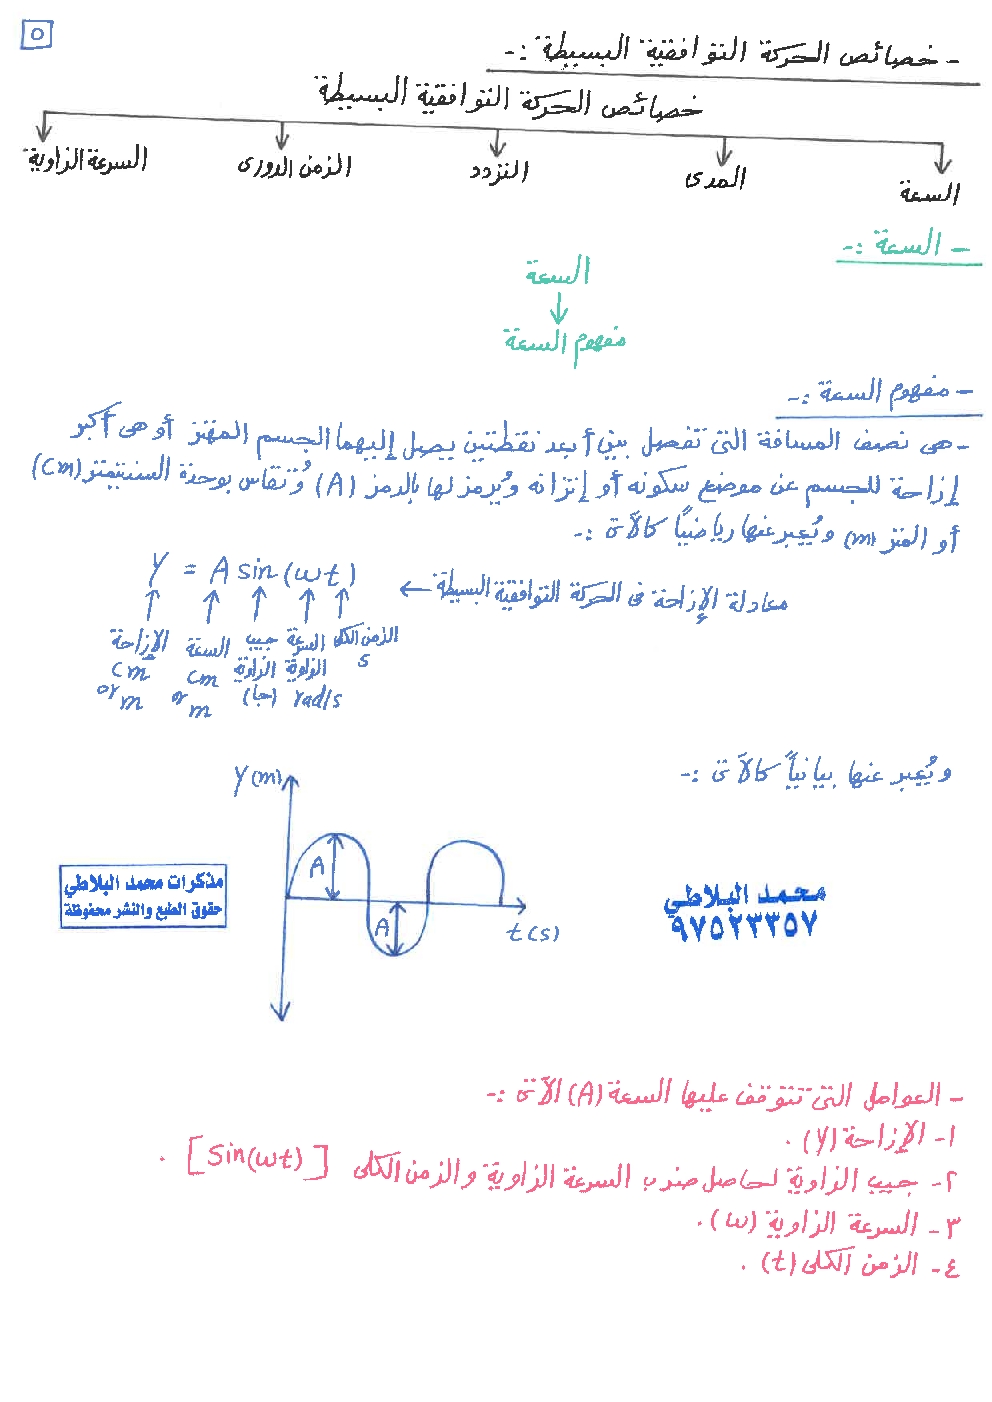 ٥
- خصائص الحركة التوافقية البسيطة :-
خصائص الحركة التوافقية البسيطة
السعة
المدى
التردد
الزمن الدورى
السرعة الزاوية
- السعة :-
السعة
مفهوم السعة
- مفهوم السعة :-
- هى نصف المسافة التى تفصل بين أبعد نقطتين يصل إليهما الجسم المهتز أو هى أكبر
إزاحة للجسم عن موضع سكونه أو إتزانه ويُرمز لها بالرمز (A) وتُقاس بوحدة السنتيمتر (cm)
أو المتر (m) ويُعبر عنها رياضياً كالآتى :-
معادلة الإزاحة فى الحركة التوافقية البسيطة ←
Y = A sin (ωt)
الإزاحة cm or m
السعة cm or m
جيب الزاوية (جا)
السرعة الزاوية rad/s
الزمن الكلى s
ويُعبر عنها بيانياً كالآتى :-
Y (m)
A
A
t (s)
مذكرات محمد البلاطي
حقوق الطبع والنشر محفوظة
محمد البلاطي
٩٧٥٢٣٣٥٧
- العوامل التى تتوقف عليها السعة (A) الآتى :-
١- الإزاحة (Y) .
٢- جيب الزاوية لحاصل ضرب السرعة الزاوية والزمن الكلى [Sin(ωt)] .
٣- السرعة الزاوية (ω) .
٤- الزمن الكلى (t) .